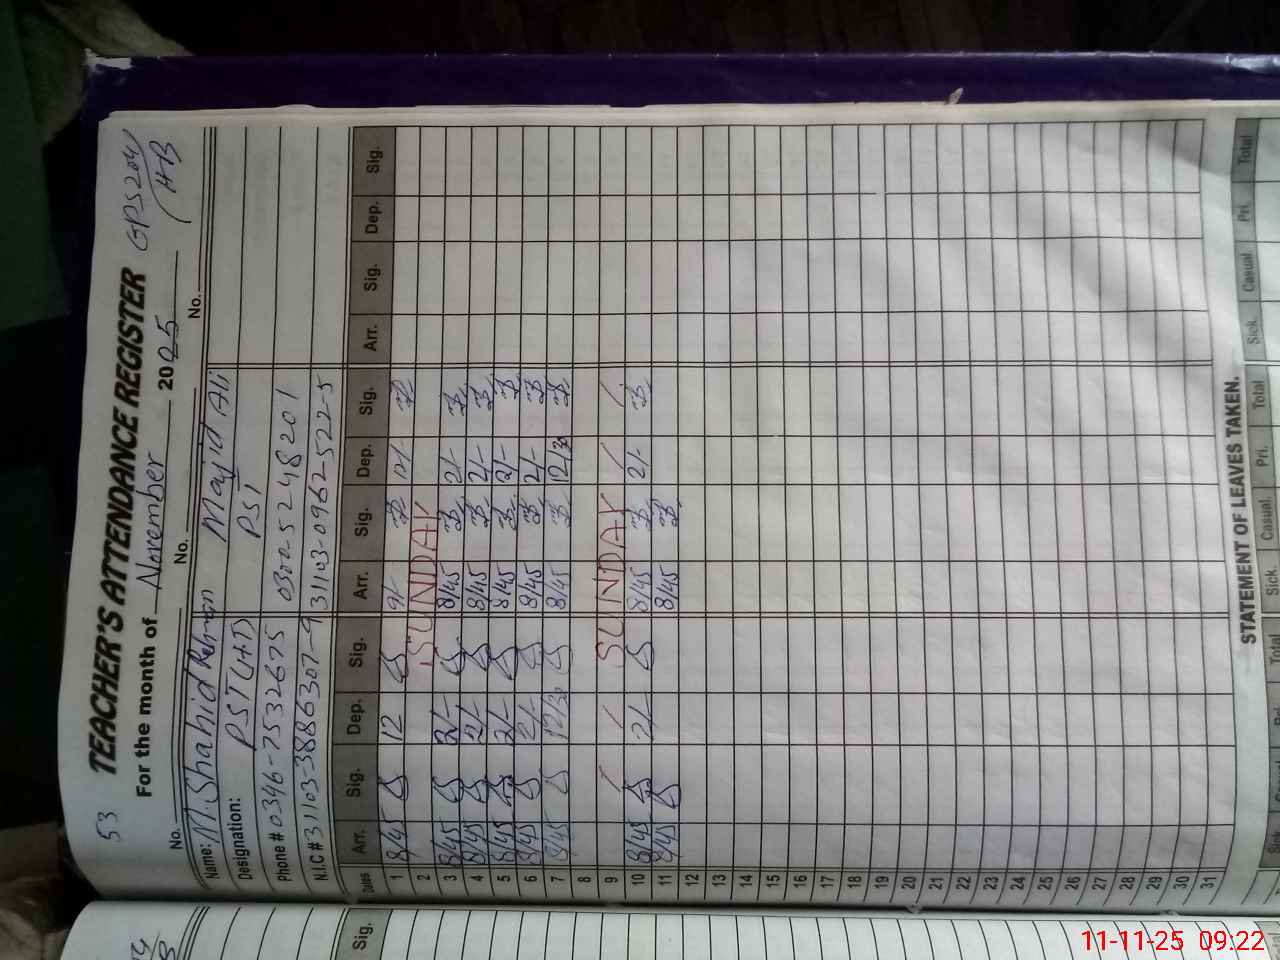 53
TEACHER'S ATTENDANCE REGISTER GPS 204/
HB
For the month of November 2025
No. No. No.
Name: M. Shahid Rehman Majid Ali
Designation: PST (HT) PST
Phone # 0346-7532675 0300-5248201
N.I.C # 31103-3886307-9 31103-0962522-5
Dates Arr. Sig. Dep. Sig. Arr. Sig. Dep. Sig. Arr. Sig. Dep. Sig.
1 8/45 12 9/- 12/-
2 SUNDAY
3 8/45 2/- 8/45 2/-
4 8/45 2/- 8/45 2/-
5 8/45 2/- 8/45 2/-
6 8/45 2/- 8/45 2/-
7 8/45 12/30 8/45 12/30
8
9 SUNDAY
10 8/45 2/- 8/45 2/-
11 8/45 8/45
12
13
14
15
16
17
18
19
20
21
22
23
24
25
26
27
28
29
30
31
STATEMENT OF LEAVES TAKEN.
Total Sick. Casual. Pri. Total Sick. Casual Pri. Total
Sig.
11-11-25 09:22